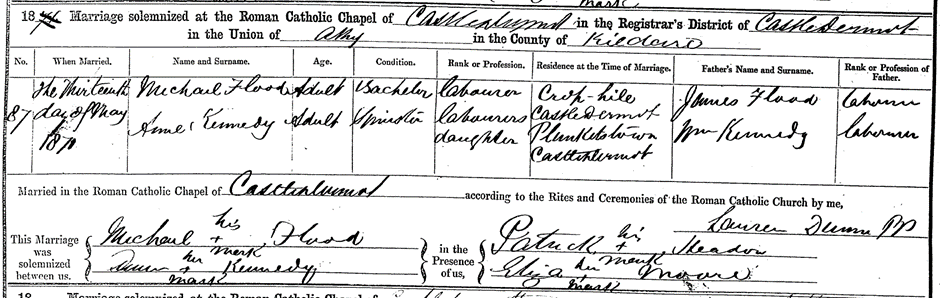 mark
18 Marriage solemnized at the Roman Catholic Chapel of Castledermot in the Registrar's District of CastleDermot
in the Union of Athy in the County of Kildare
No. When Married. Name and Surname. Age. Condition. Rank or Profession. Residence at the Time of Marriage. Father's Name and Surname. Rank or Profession of Father.
87 The Thirteenth day of May 1870 Michael Flood Adult Bachelor labourer Crop-hile CastleDermot James Flood labourer
Anne Kennedy Adult Spinster labourers daughter Plunketstown Castledermot Wm Kennedy labourer
Married in the Roman Catholic Chapel of Castledermot according to the Rites and Ceremonies of the Roman Catholic Church by me,
Dunne PP
This Marriage was solemnized between us, Michael his + mark Flood in the Presence of us, Patrick his + mark
Kennedy her mark Eliza her + mark Moore
18 Marriage solemnized at the Roman Catholic Chapel of